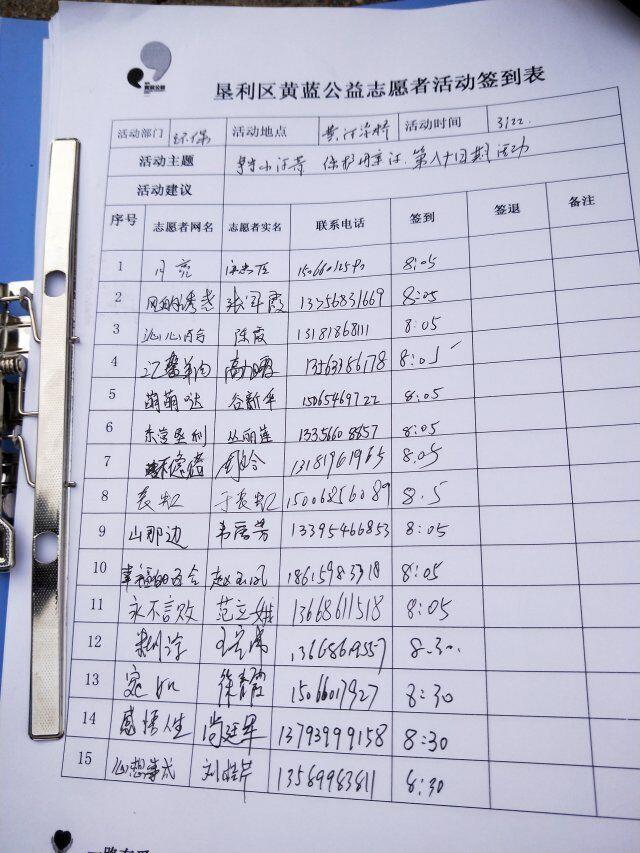 垦利区黄蓝公益志愿者活动签到表
活动部门 环保 活动地点 黄河浮桥 活动时间 3/22.
活动主题 保护母亲河 第八十四期 活动
活动建议
序号 志愿者网名 志愿者实名 联系电话 签到 签退 备注
1 月亮 8:05
2 张泽霞 13756831669 8:05
3 沁心百合 陈霞 13181868111 8:05
4 13563386178 8:05
5 萌萌哒 谷新华 15065469722 8:05
6 东营垦利 丛丽莲 13356608857 8:05
7 13181961965 8:05
8 袁红 于袁红 15006856089 8.5
9 山那边 韦居芳 13395466853 8:05
10 幸福的百合 赵玉凤 18615983318 8:05
11 永不言败 范立娥 13668611518 8:05
12 13668619557 8.30.
13 15066017927 8:30
14 感悟人生 尚廷军 13793999158 8:30
15 心想事成 刘桂芹 13589983811 8:30